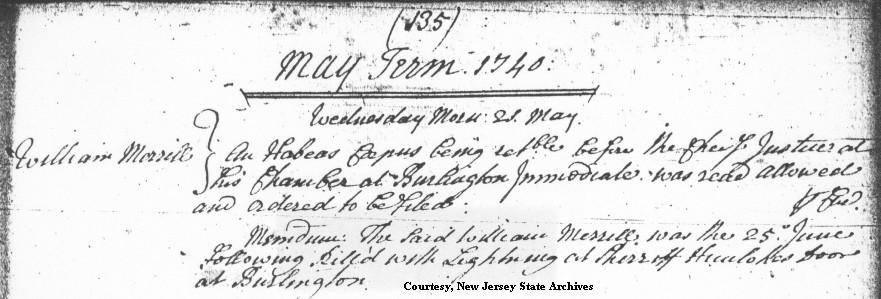 (135)
May Term 1740:
Wednesday Morn: 21. May
William Merrill } An Habeas Corpus being retble before the Cheif Justice at
his Chamber at Burlington Immediate was read allowed
and ordered to be filed.
Memdum: The Said William Merrill, was the 25 June
following Killd with Lightning at Sherriff Hunlokes door
at Burlington.
Courtesy, New Jersey State Archives